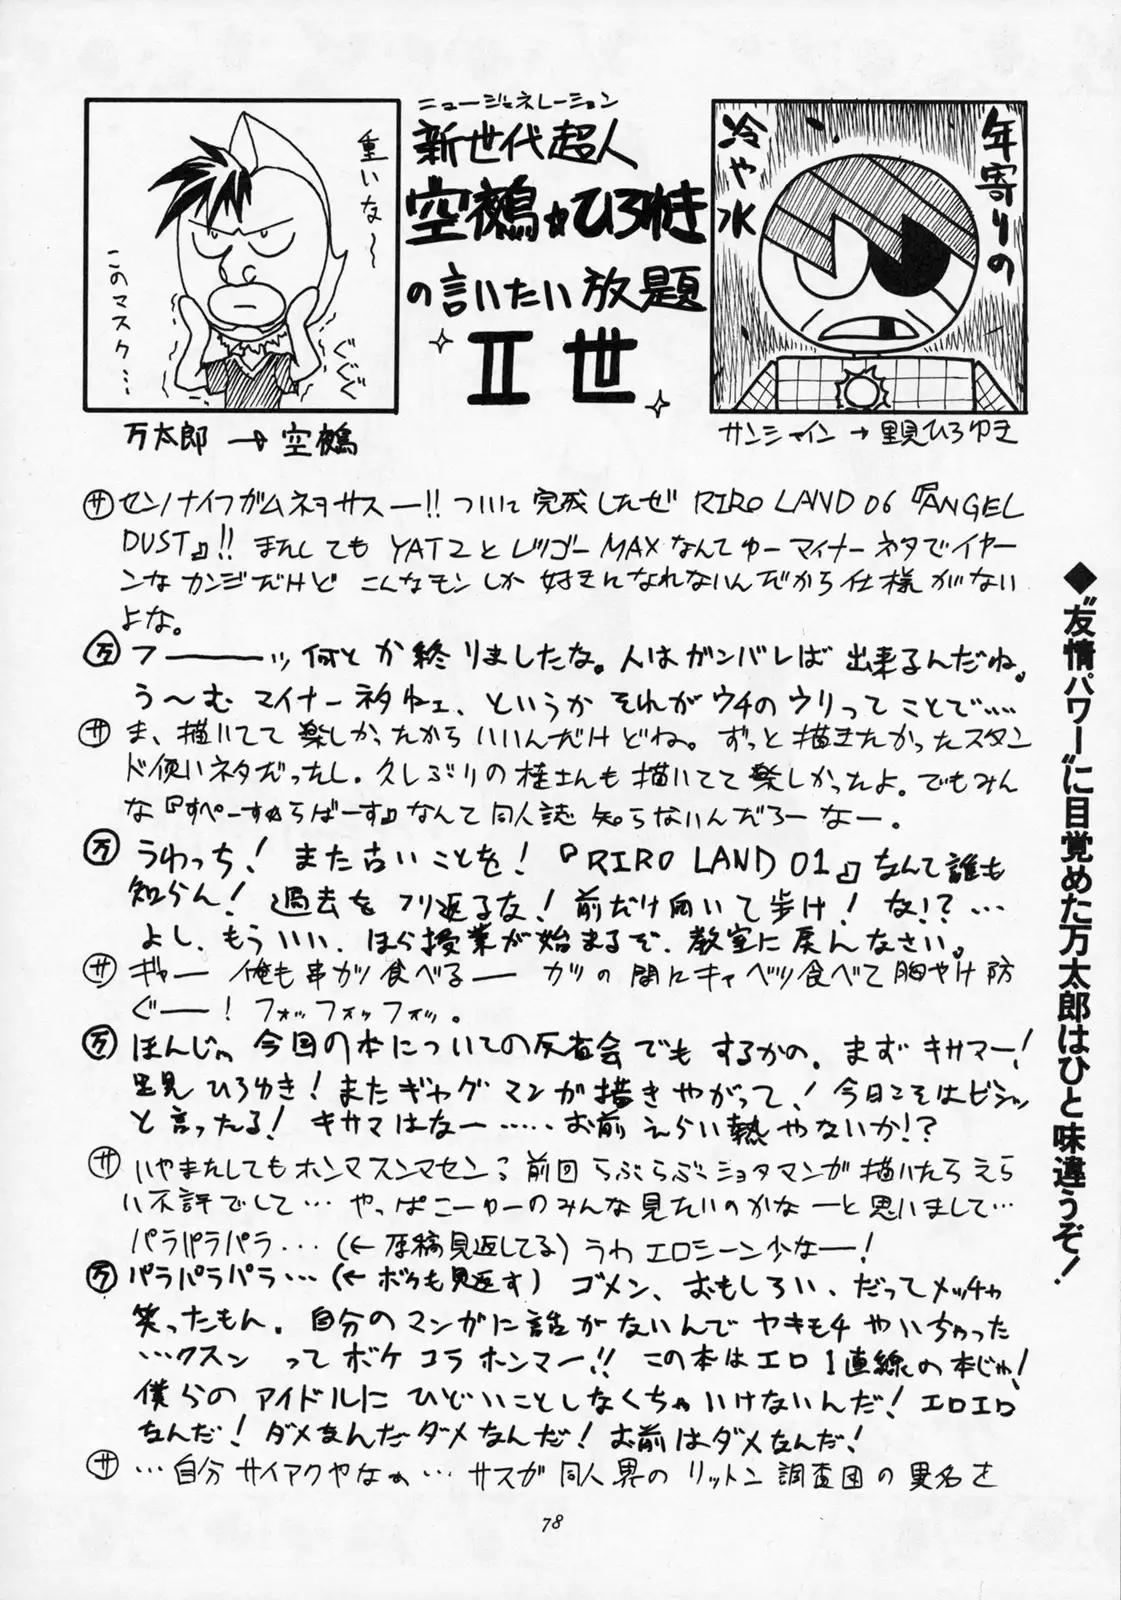 ニュージェネレーション
新世代超人
空鵺☆ひろゆき
の言いたい放題
Ⅱ世
重いな〜
このマスク…
ぐぐぐ
万太郎→空鵺
年寄りの
冷や水
サンシャイン→里見ひろゆき
サ センノナイフガムネヲサスー!! ついに完成したぜ RIRO LAND 06『ANGEL
DUST』!! またしても YAT2とレッツゴーMAXなんてゆーマイナーネタでイヤー
ンなカンジだけど こんなモンしか好きになれないんだから仕様がない
よな。
万 フーーーッ何とか終りましたな。人はガンバレば出来るんだね。
う〜む マイナーネタねェ、というか それがウチのウリってことで……
サ ま、描いてて楽しかったからいいんだけどね。ずっと描きたかったスタン
ド使いネタだったし。久しぶりの桂さんも描いてて楽しかったよ。でもみん
な『すぺーす☆らばーす』なんて同人誌知らないんだろーなー。
万 うわっち! また古いことを!『RIRO LAND 01』なんて誰も
知らん! 過去をフリ返るな! 前だけ向いて歩け! な!?…
よし、もういい、ほら授業が始まるぞ、教室に戻んなさい。
サ ギャー 俺も串カツ食べるー カツの間にキャベツ食べて胸やけ防
ぐー! フォッフォッフォッ。
万 ほんじゃ 今回の本についての反省会でもするかの。まずキサマー!
里見ひろゆき! またギャグマンガ描きやがって! 今日こそはビシッ
と言ったる! キサマはなー……お前えらい熱やないか!?
サ いやまたしてもホンマスンマセン: 前回らぶらぶショタマンガ描いたらえら
い不評でして… やっぱこーゆーのみんな見たいのかなーと思いまして…
パラパラパラ…(←原稿見返してる) うわエロシーン少なー!
万 パラパラパラ…(←ボクも見返す) ゴメン、おもしろい、だってメッチャ
笑ったもん。自分のマンガに話がないんでヤキモチやいちゃった
…クスン ってボケコラホンマー!! この本はエロ1直線の本じゃ!
僕らのアイドルにひどいことしなくちゃいけないんだ! エロエロ
なんだ! ダメなんだダメなんだ! お前はダメなんだ!
サ …自分サイアクやなぁ… サスガ同人界のリットン調査団の異名を
◆“友情パワー”に目覚めた万太郎はひと味違うぞ!
78